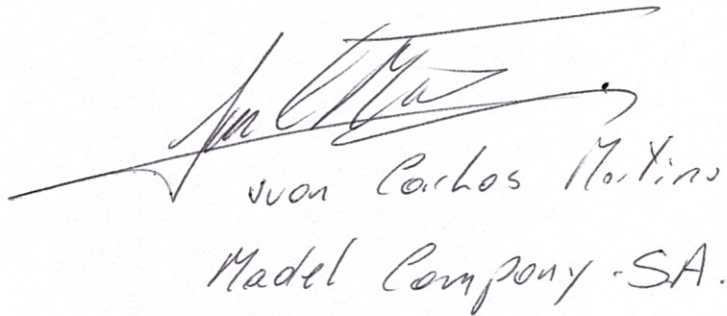 Juan Carlos Martino
Madel Company. SA.